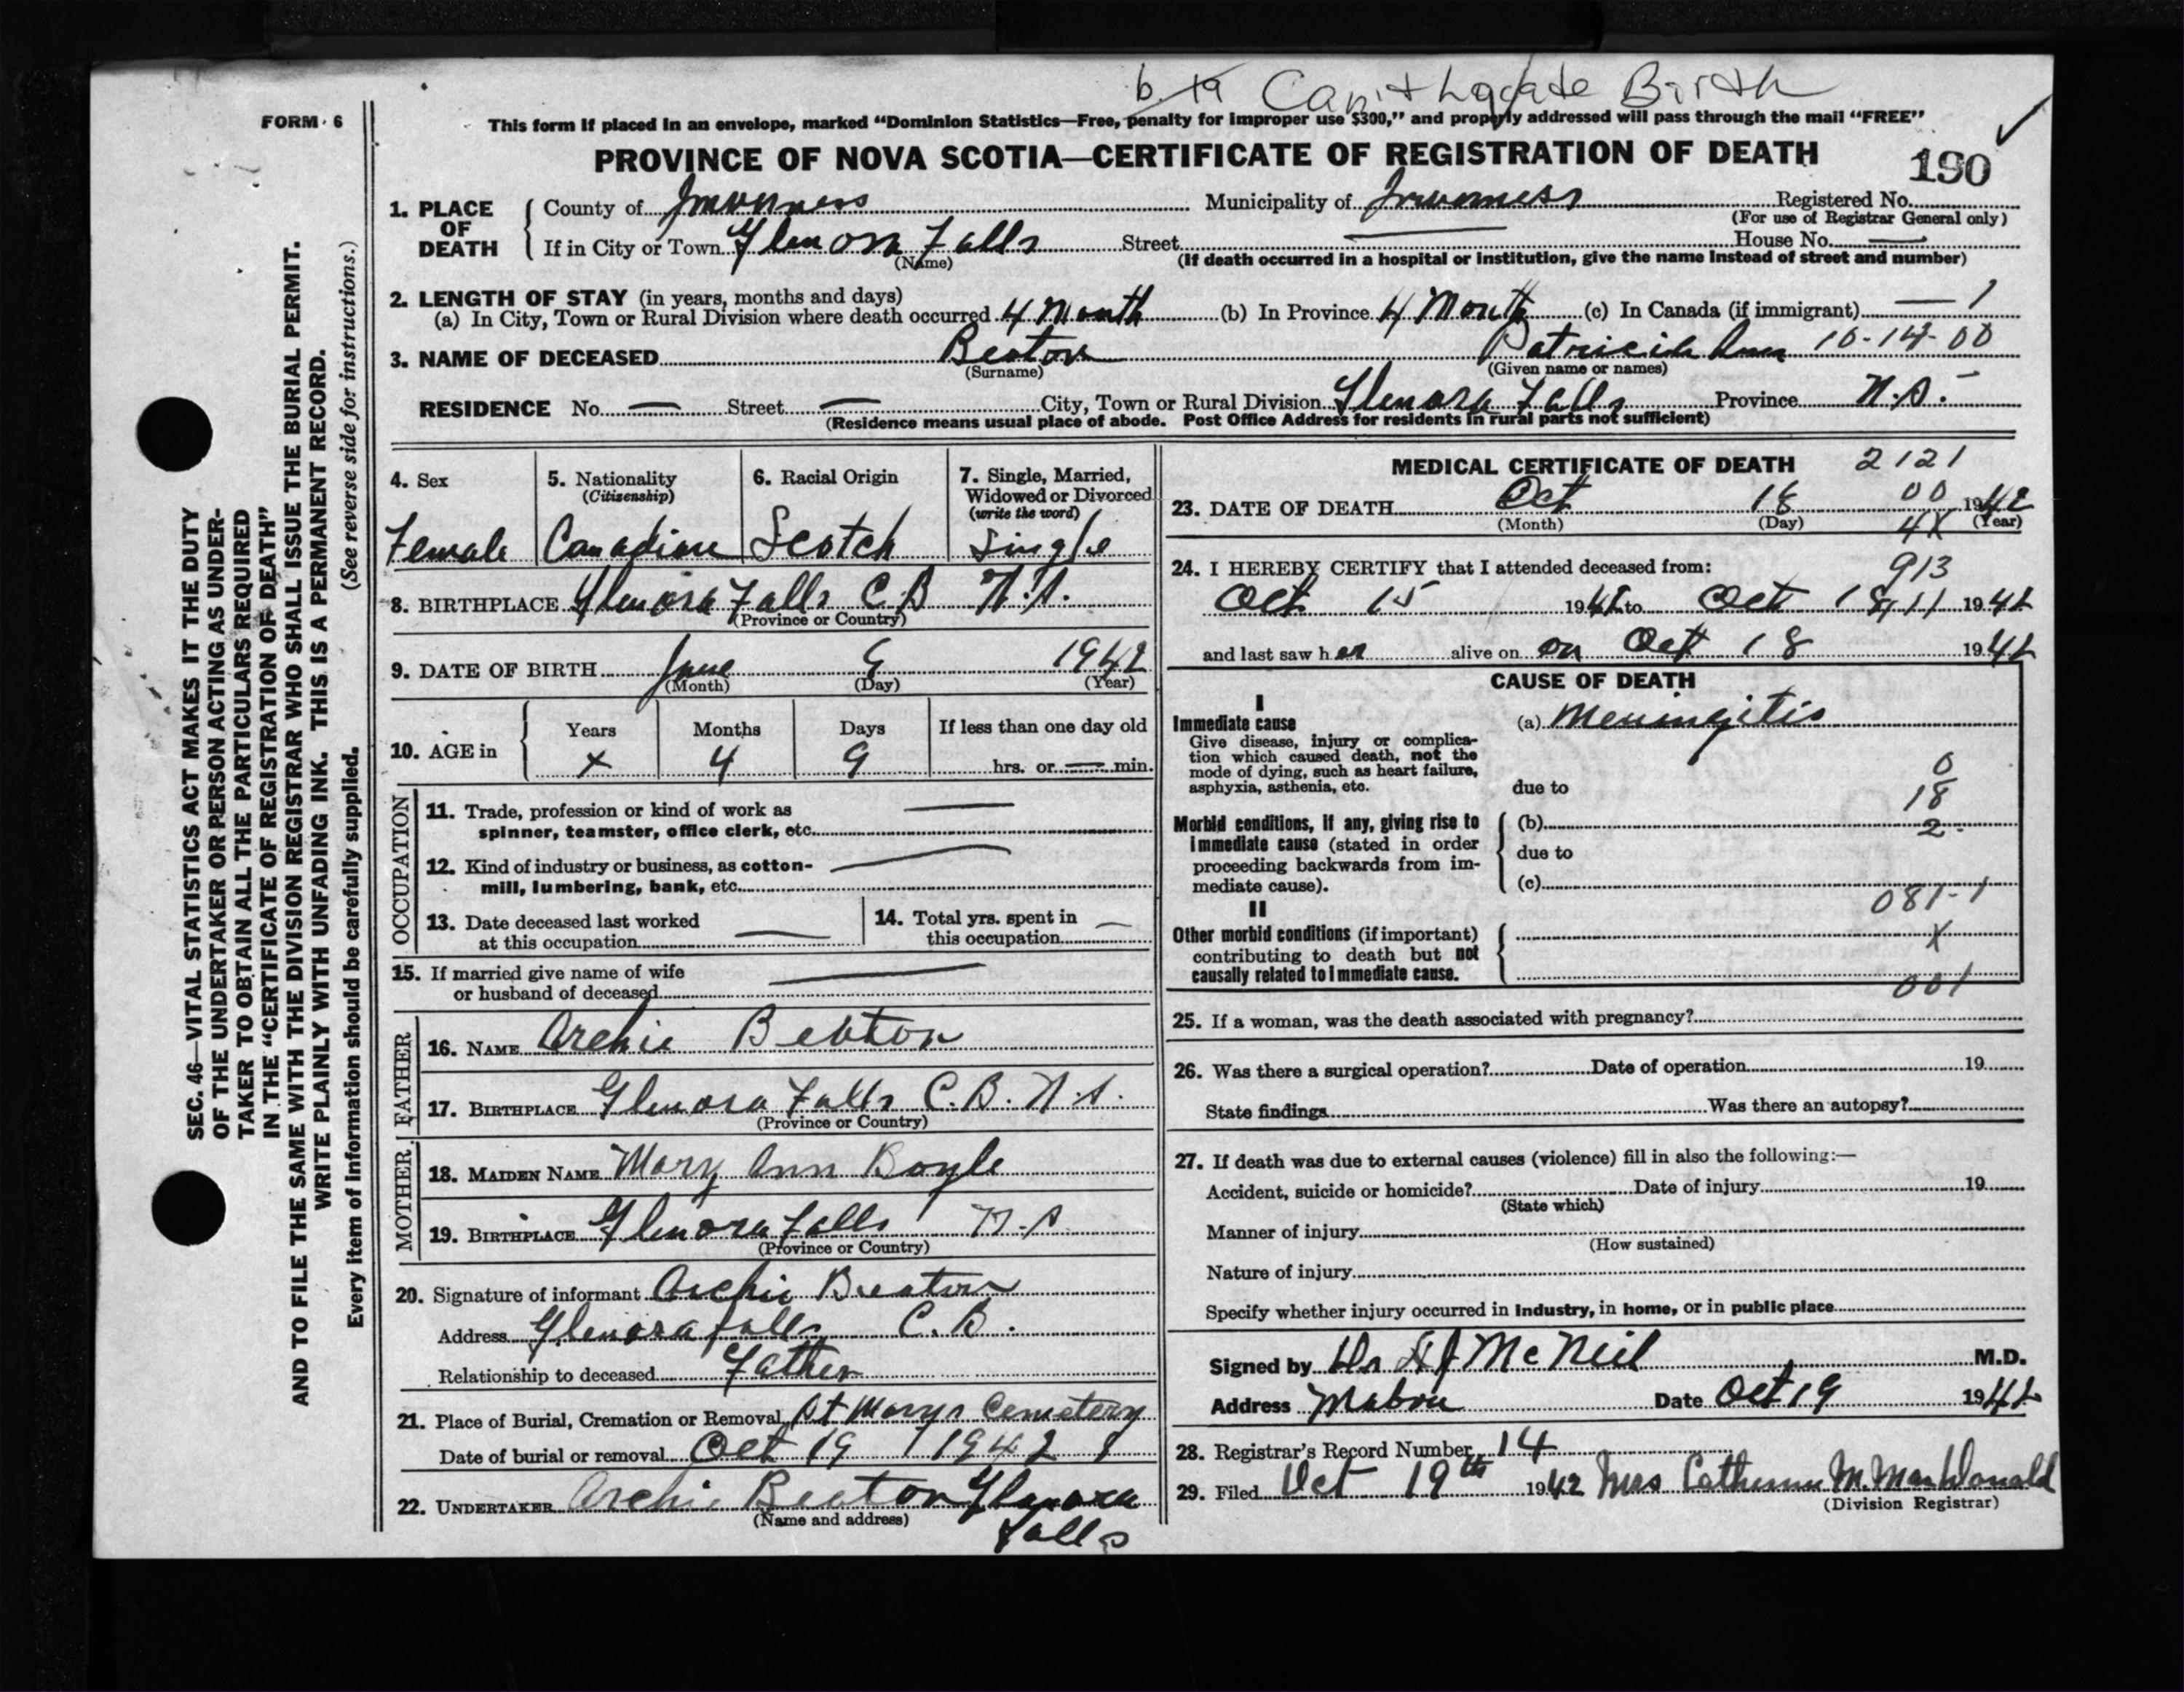 Birth
FORM 6
This form if placed in an envelope, marked "Dominion Statistics—Free, penalty for improper use $300," and properly addressed will pass through the mail "FREE"
PROVINCE OF NOVA SCOTIA—CERTIFICATE OF REGISTRATION OF DEATH
190
1. PLACE OF DEATH
County of Inverness Municipality of Inverness Registered No.
(For use of Registrar General only)
If in City or Town Glenora Falls Street — House No. —
(Name) (If death occurred in a hospital or institution, give the name instead of street and number)
2. LENGTH OF STAY (in years, months and days)
(a) In City, Town or Rural Division where death occurred 4 Month (b) In Province 4 Month (c) In Canada (if immigrant) — 1
3. NAME OF DECEASED Beaton Patricia Ann 10-14-00
(Surname) (Given name or names)
RESIDENCE No. — Street — City, Town or Rural Division Glenora Falls Province N.S.
(Residence means usual place of abode. Post Office Address for residents in rural parts not sufficient)
4. Sex
Female
5. Nationality
(Citizenship)
Canadian
6. Racial Origin
Scotch
7. Single, Married,
Widowed or Divorced
(write the word)
Single
8. BIRTHPLACE Glenora Falls C.B N.S.
(Province or Country)
9. DATE OF BIRTH June 9 1942
(Month) (Day) (Year)
10. AGE in
Years Months Days If less than one day old
x 4 9 hrs. or — min.
OCCUPATION
11. Trade, profession or kind of work as —
spinner, teamster, office clerk, etc.
12. Kind of industry or business, as cotton- —
mill, lumbering, bank, etc.
13. Date deceased last worked
at this occupation —
14. Total yrs. spent in
this occupation —
15. If married give name of wife —
or husband of deceased
FATHER
16. NAME Archie Beaton
17. BIRTHPLACE Glenora Falls C.B. N.S.
(Province or Country)
MOTHER
18. MAIDEN NAME Mary Ann Boyle
19. BIRTHPLACE Glenora Falls N.S
(Province or Country)
20. Signature of informant Archie Beaton
Address Glenora Falls C.B.
Relationship to deceased Father
21. Place of Burial, Cremation or Removal St Marys Cemetery
Date of burial or removal Oct 19 1942
22. UNDERTAKER Archie Beaton Glenora
(Name and address)
Falls
MEDICAL CERTIFICATE OF DEATH 2121
00
23. DATE OF DEATH Oct 18 1942
(Month) (Day) (Year)
4X
24. I HEREBY CERTIFY that I attended deceased from:
913
Oct 15 1942 to Oct 18 1942
and last saw her alive on on Oct 18 1942
CAUSE OF DEATH
I
Immediate cause
Give disease, injury or complica-
tion which caused death, not the
mode of dying, such as heart failure,
asphyxia, asthenia, etc.
(a) Meningitis
0
due to
18
Morbid conditions, if any, giving rise to
immediate cause (stated in order
proceeding backwards from im-
mediate cause).
(b)
2.
due to
(c)
081-1
II
Other morbid conditions (if important)
contributing to death but not
causally related to immediate cause.
X
001
25. If a woman, was the death associated with pregnancy?
26. Was there a surgical operation? Date of operation 19
State findings Was there an autopsy?
27. If death was due to external causes (violence) fill in also the following:—
Accident, suicide or homicide? Date of injury 19
(State which)
Manner of injury
(How sustained)
Nature of injury
Specify whether injury occurred in industry, in home, or in public place
Signed by Dr McNeil M.D.
Address Mabou Date Oct 19 1942
28. Registrar's Record Number 14
29. Filed Oct 19th 1942 Mrs Catherine M. MacDonald
(Division Registrar)
SEC. 46—VITAL STATISTICS ACT MAKES IT THE DUTY
OF THE UNDERTAKER OR PERSON ACTING AS UNDER-
TAKER TO OBTAIN ALL THE PARTICULARS REQUIRED
IN THE "CERTIFICATE OF REGISTRATION OF DEATH"
AND TO FILE THE SAME WITH THE DIVISION REGISTRAR WHO SHALL ISSUE THE BURIAL PERMIT.
WRITE PLAINLY WITH UNFADING INK. THIS IS A PERMANENT RECORD.
Every item of information should be carefully supplied. (See reverse side for instructions.)